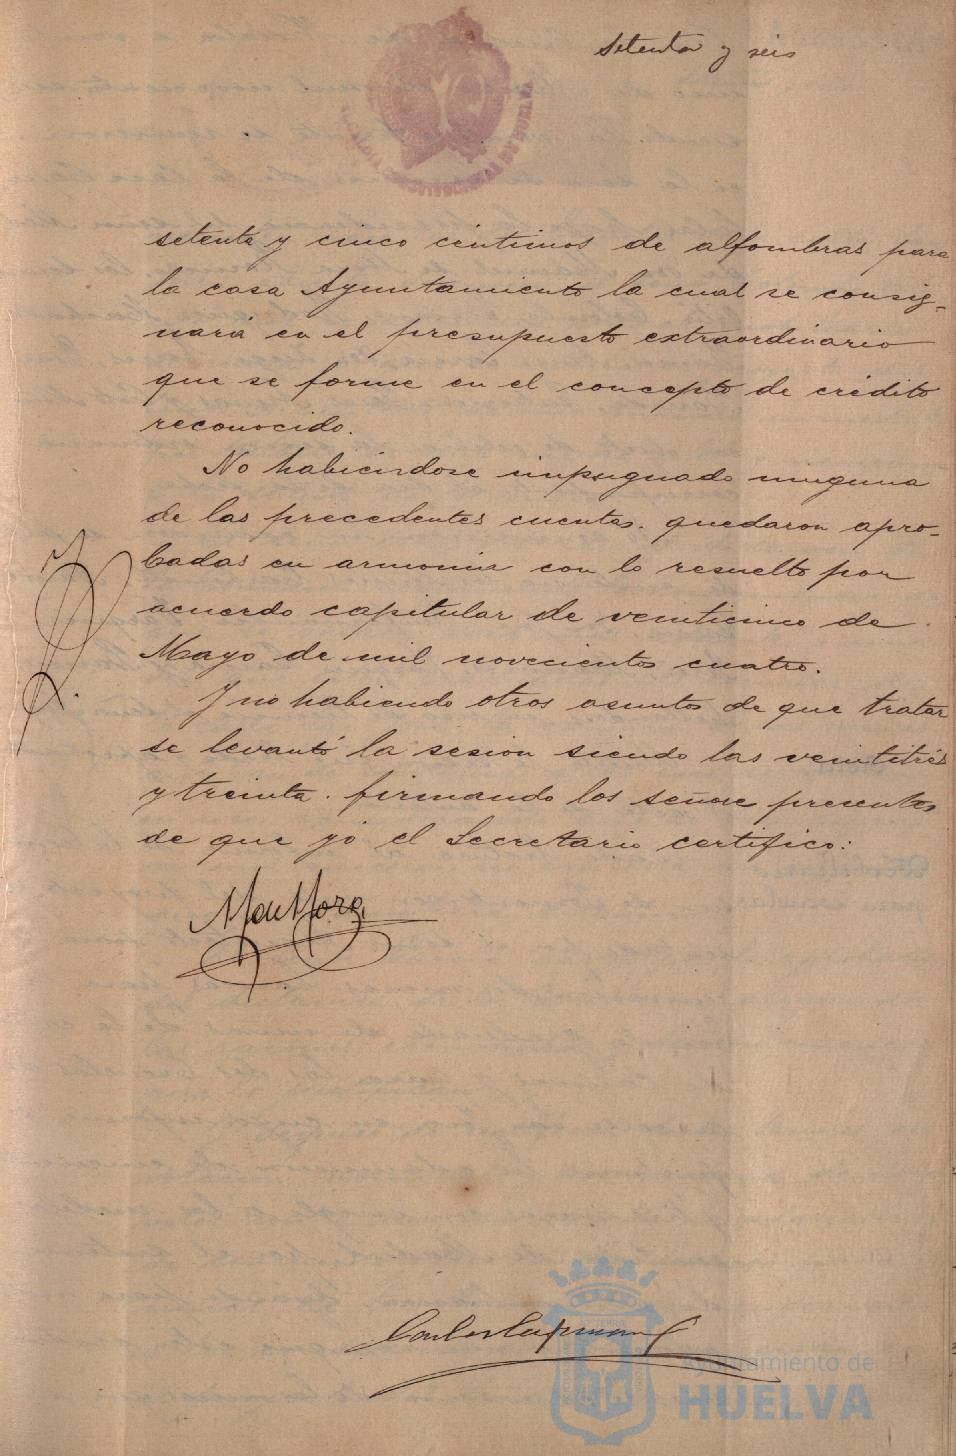 Setenta y seis
setenta y cinco céntimos de alfombras para
la casa Ayuntamiento la cual se consig-
nará en el presupuesto extraordinario
que se forme en el concepto de crédito
reconocido.
No habiéndose impugnado ninguna
de las precedentes cuentas. quedaron apro-
badas en armonia con lo resuelto por
acuerdo capitular de veinticinco de
Mayo de mil novecientos cuatro.
Y no habiendo otros asuntos de que tratar
se levantó la sesion siendo las veintitrés
y treinta. firmando los señore presentes
de que yó el Secretario certifico:
Ayuntamiento de
HUELVA